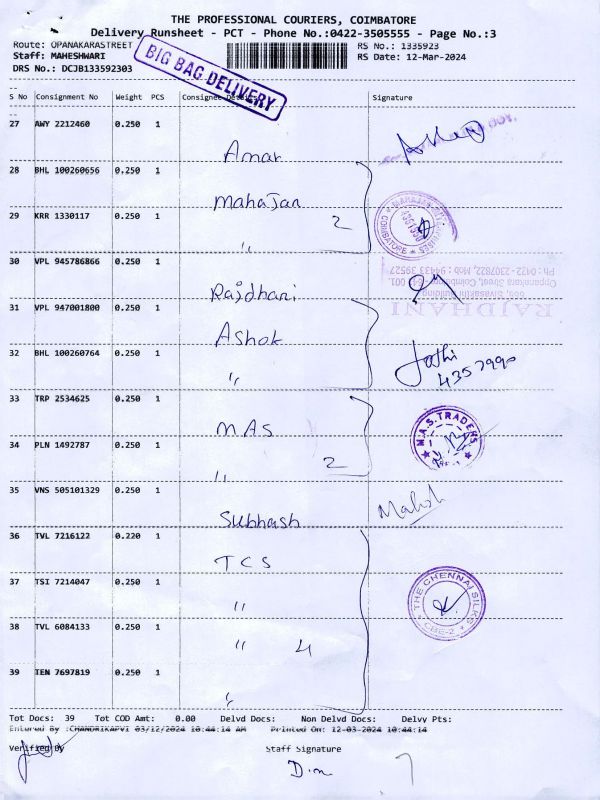 THE PROFESSIONAL COURIERS, COIMBATORE
Delivery Runsheet - PCT - Phone No.:0422-3505555 - Page No.:3
Route: OPANAKARASTREET
RS No.: 1335923
Staff: MAHESHWARI
RS Date: 12-Mar-2024
DRS No.: DCJB133592303
BIG BAG DELIVERY
S No Consignment No Weight PCS Consignee Details Signature
27 AWY 2212460 0.250 1 Amar
28 BHL 100260656 0.250 1 Mahajan
29 KRR 1330117 0.250 1 " 2
COIMBATORE
30 VPL 945786866 0.250 1 Rajdhani
RAJDHANI
605, Sivasakthi Building
Oppanakara Street, Coimbatore - 641 001.
Ph : 0422 - 2307822, Mob : 94433 39527
31 VPL 947001800 0.250 1 Ashok
32 BHL 100260764 0.250 1 "
Jothi
4357990
33 TRP 2534625 0.250 1 MAS
M.A.S. TRADERS
34 PLN 1492787 0.250 1 " 2
35 VNS 505101329 0.250 1 Subhash
Mahesh
36 TVL 7216122 0.220 1 TCS
37 TSI 7214047 0.250 1 "
THE CHENNAI SILKS
CBE-2
38 TVL 6084133 0.250 1 " 4
39 TEN 7697819 0.250 1 "
Tot Docs: 39 Tot COD Amt: 0.00 Delvd Docs: Non Delvd Docs: Delvy Pts:
Entered By :CHANDRIKAPVI 03/12/2024 10:44:14 AM Printed On: 12-03-2024 10:44:14
Verified By Staff Signature